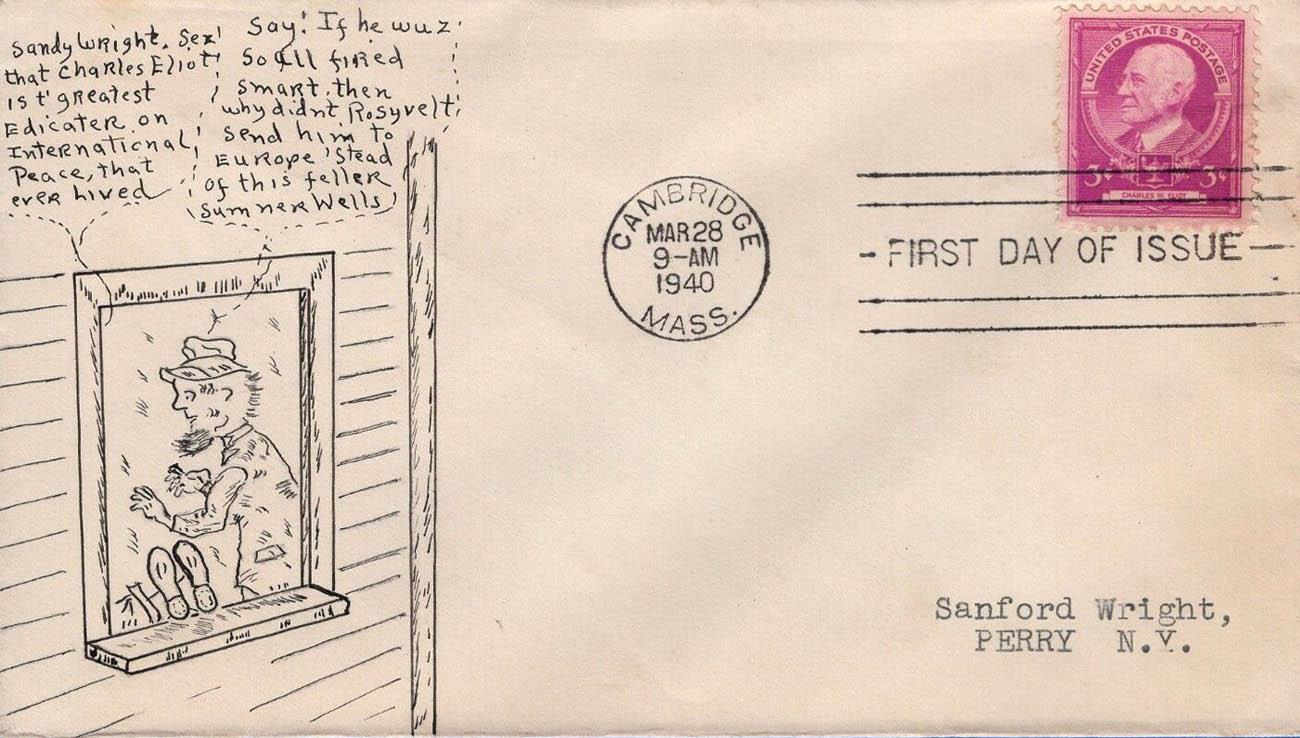 Sandy Wright. Sez
that Charles Eliot
is t' greatest
Edicater on
International
Peace, that
ever hived
Say! If he wuz
So All fired
smart, then
why didnt Rosyvelt
send him to
Europe 'Stead
of this feller
Sumner Wells
CAMBRIDGE
MAR 28
9-AM
1940
MASS.
UNITED STATES POSTAGE
3¢ 3¢
CHARLES W. ELIOT
FIRST DAY OF ISSUE
Sanford Wright,
PERRY N.Y.